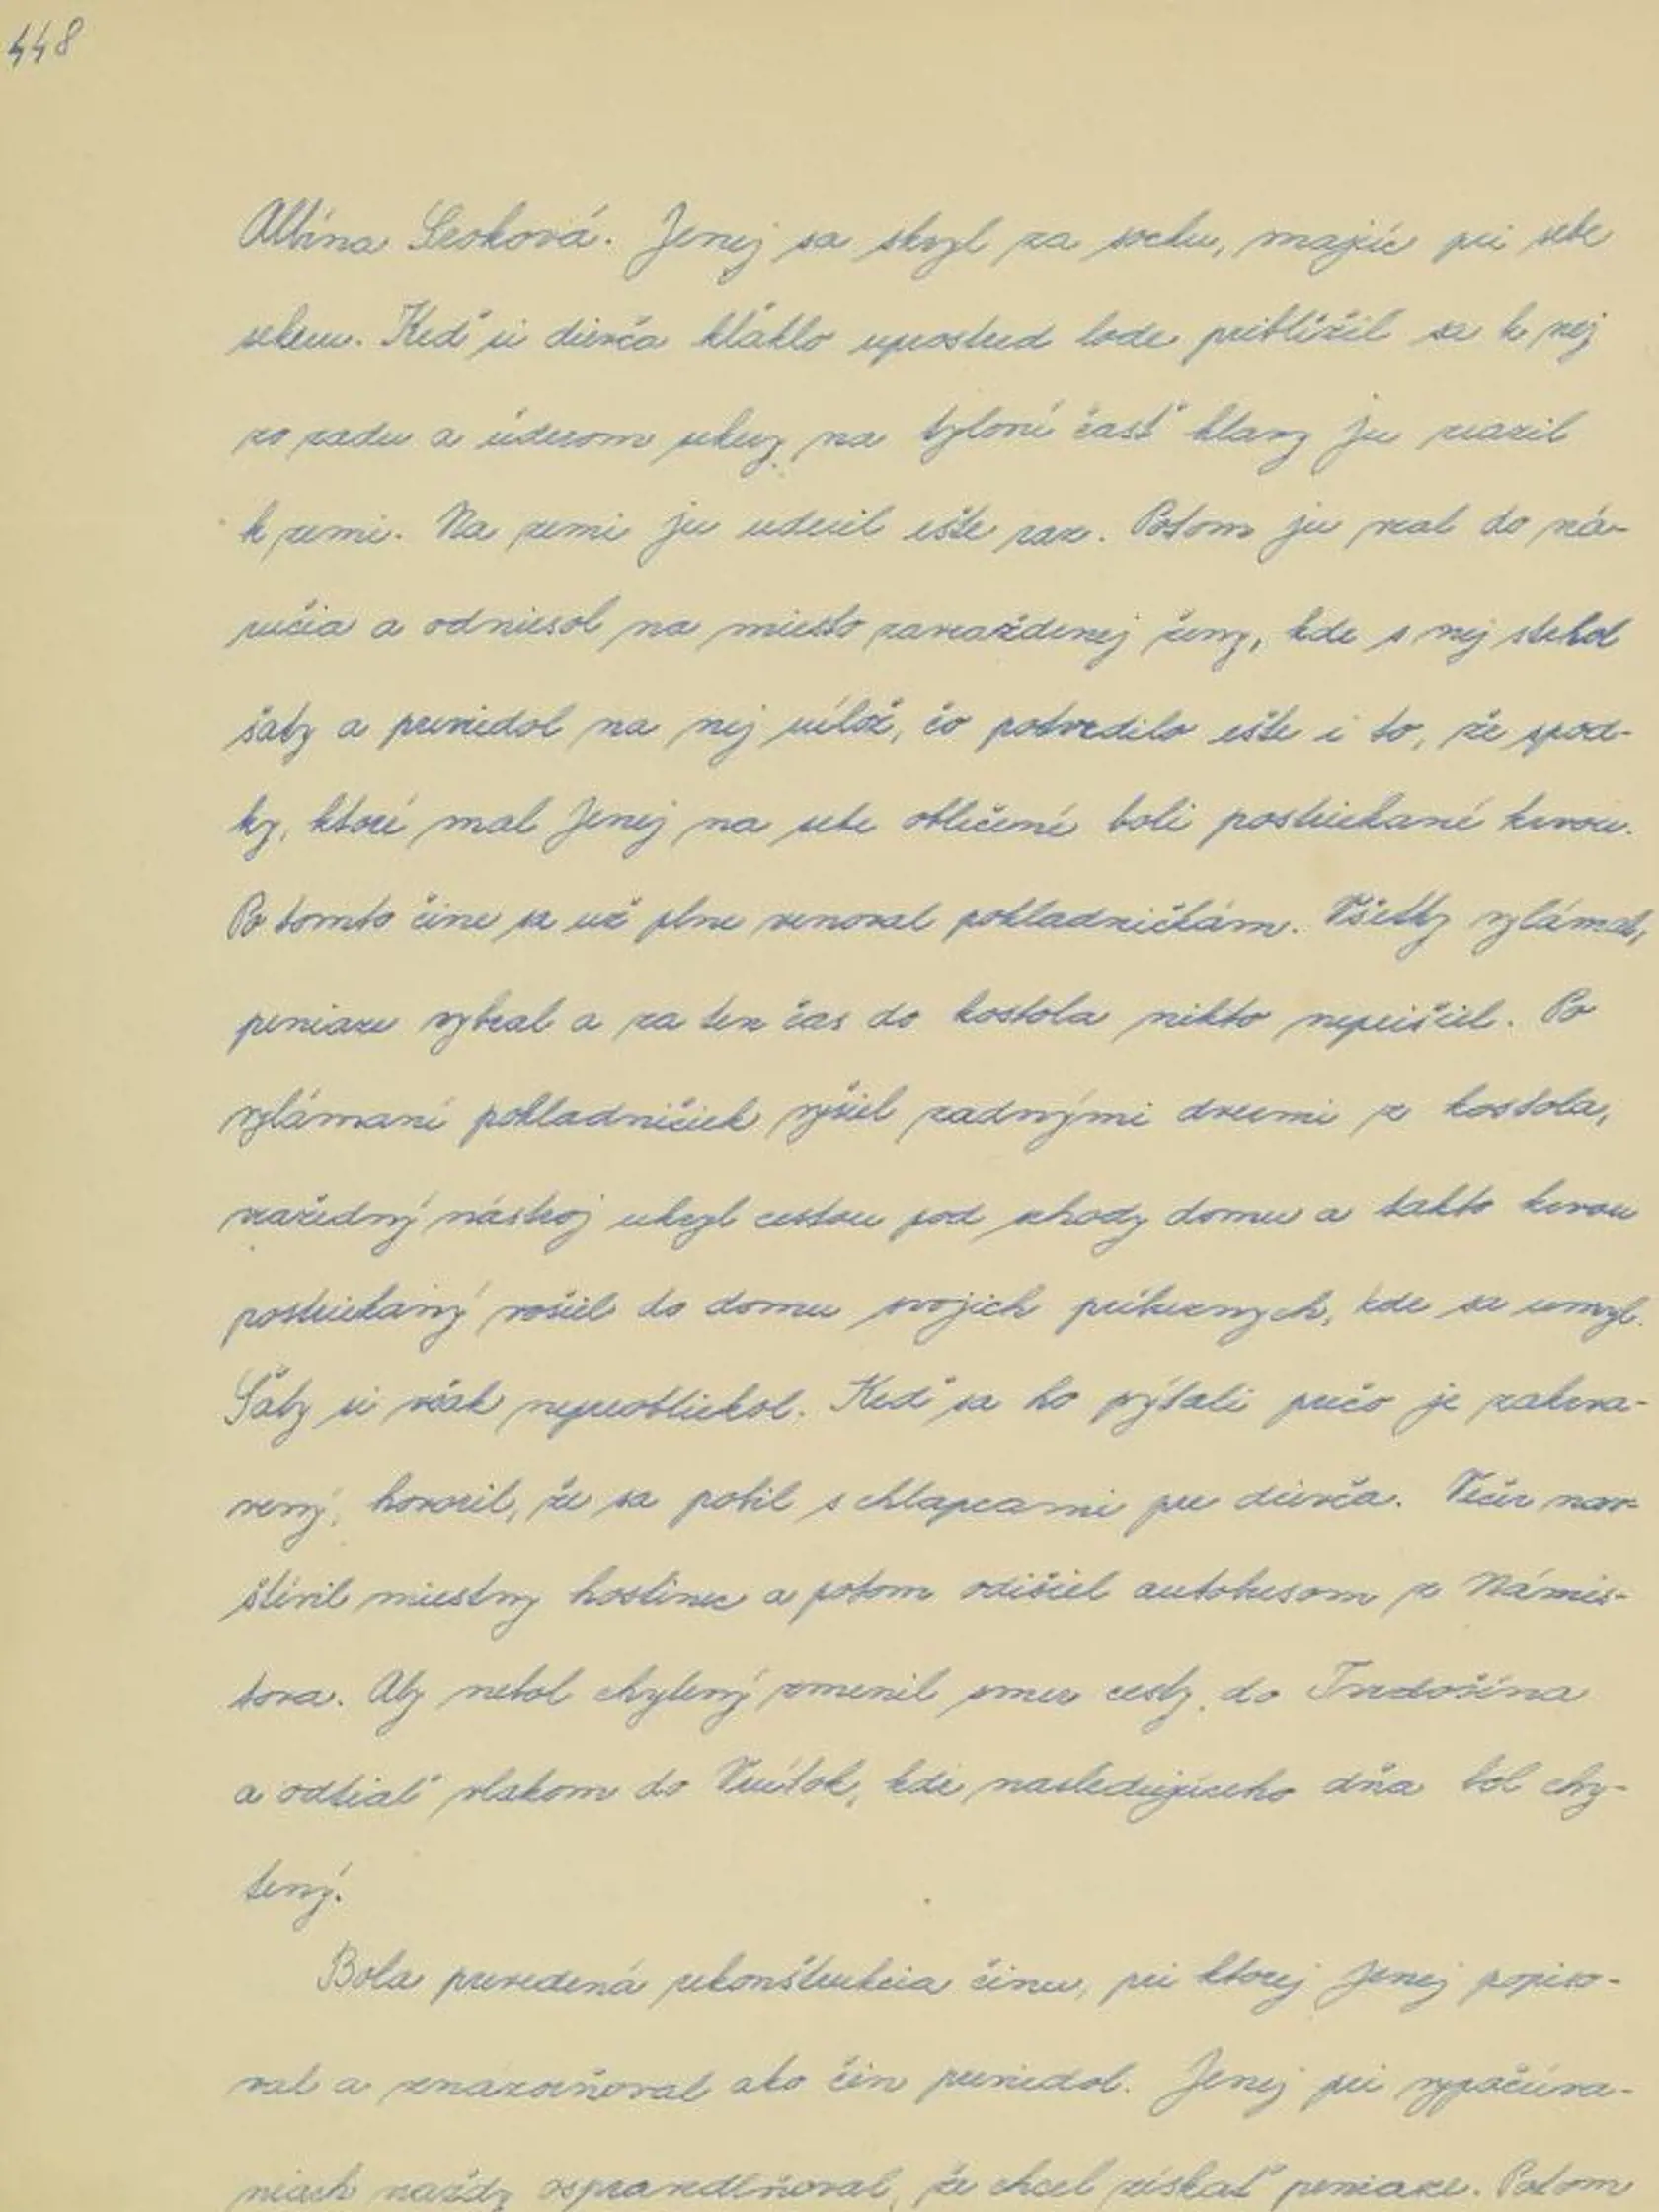 448
Albína Seoková. Jenej sa skryl za sochu, majíc pri sebe
sekeru. Keď si dievča kľaklo uprostred lode priblížil sa k nej
zo zadu a úderom sekery na tylovú časť hlavy ju zrazil
k zemi. Na zemi ju uderil ešte raz. Potom ju vzal do ná-
ručia a odniesol na miesto zavraždenej ženy, kde s nej stiahol
šaty a previedol na nej vílož, čo potvrdilo ešte i to, že spod-
ky, ktoré mal Jenej na sebe oblečené boli postriekané krvou.
Po tomto čine sa už plne venoval pokladničkám. Všetky vylámal,
peniaze vybral a za ten čas do kostola nikto neprišiel. Po
vylámaní pokladničiek vyšiel zadnými dvermi z kostola,
vražedný nástroj ukryl cestou pod schody domu a takto krvou
postriekaný vošiel do domu svojich príbuzných, kde sa umyl.
Šaty si však neprobliekol. Keď sa ho pýtali prečo je zakrva-
vený, hovoril, že sa pobil s chlapcami pre dievča. Večer nav-
štívil miestny hostinec a potom odišiel autobusom z Námes-
tova. Aby nebol chytený zmenil smer cesty do Trvdošína
a odtiaľ vlakom do Vrútok, kde nasledujúceho dňa bol chy-
tený.
Bola prevedená rekonštrukcia činu, pri ktorej Jenej popiso-
val a znázorňoval ako čin previedol. Jenej pri vypočúva-
niach vraždy ospravedlňoval, že chcel získať peniaze. Potom